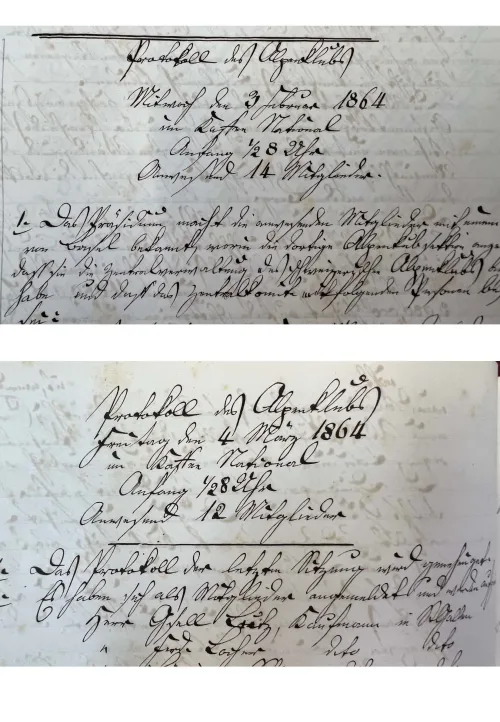 Protokoll des Alpenklubs
Mittwoch den 3 Februar 1864
im Kaffee National
Anfang ½ 8 Uhr
Anwesend 14 Mitglieder.
1. Das Präsidium macht die anwesenden Mitglieder mit einem
von Basel bekannt, worin die dortige Alpenklubsektion
daß sie die Zentralverwaltung des schweizerischen Alpenklubs
habe und daß das Zentralkomite aus folgenden Personen
Protokoll des Alpenklubs
Freitag den 4 März 1864
im Kaffee National
Anfang ½8 Uhr
Anwesend 12 Mitglieder
Das Protokoll der letzten Sitzung wird genehmigt.
Es haben sich als Mitglieder angemeldet und
Herr Gsell Lutz, Kaufmann in St Gallen
" Locher dito dito